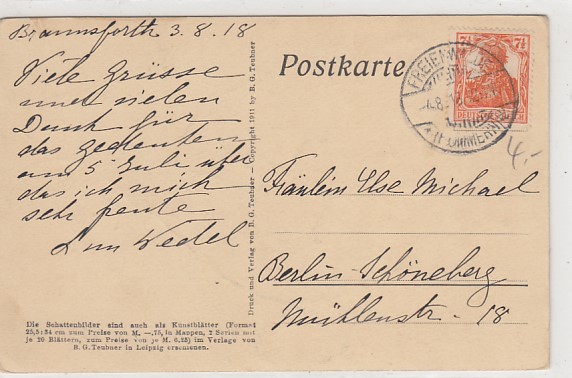 Braunsforth 3.8.18
Viele Grüsse
und vielen
Dank für
das Gedenken
am 5 Juli über
das ich mich
sehr freute
Wedel
Die Schattenbilder sind auch als Kunstblätter (Format
25,5:34 cm zum Preise von M. —.75, in Mappen, 2 Serien mit
je 20 Blättern, zum Preise von je M. 6.25) im Verlage von
B. G. Teubner in Leipzig erschienen.
Druck und Verlag von B. G. Teubner – Copyright 1911 by B. G. Teubner
Postkarte
7½ 7½
DEUTSCHES REICH
FREIENWALDE
(POMMERN)
4.-
Fräulein Else Michael
Berlin-Schöneberg
Mühlenstr. 18